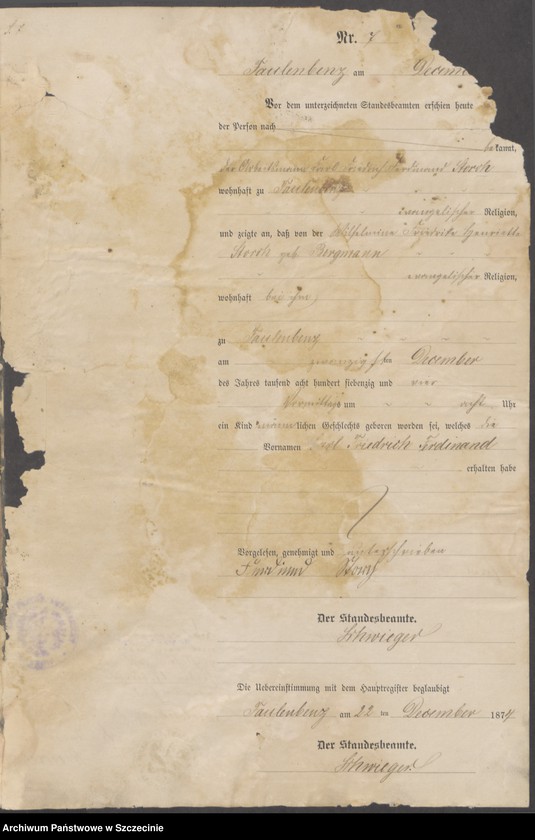 Nr. 7
Faulenbenz am Decem
Vor dem unterzeichneten Standesbeamten erschien heute
der Person nach
bekannt,
der Karl Friedrich Ferdinand Storch
wohnhaft zu Faulenbenz
evangelischer Religion,
und zeigte an, daß von der Wilhelmine Friedrike Henriette
Storch geb Bergmann
evangelischer Religion,
wohnhaft bei ihm,
zu Faulenbenz
am zwanzigsten December
des Jahres tausend acht hundert siebenzig und vier
Vormittags um acht Uhr
ein Kind männlichen Geschlechts geboren worden sei, welches die
Vornamen Karl Friedrich Ferdinand
erhalten habe
Vorgelesen, genehmigt und unterschrieben
Ferdinand Storch
Der Standesbeamte.
Schwieger
Die Uebereinstimmung mit dem Hauptregister beglaubigt
Faulenbenz am 22 ten December 1874
Der Standesbeamte.
Schwieger
Archiwum Państwowe w Szczecinie